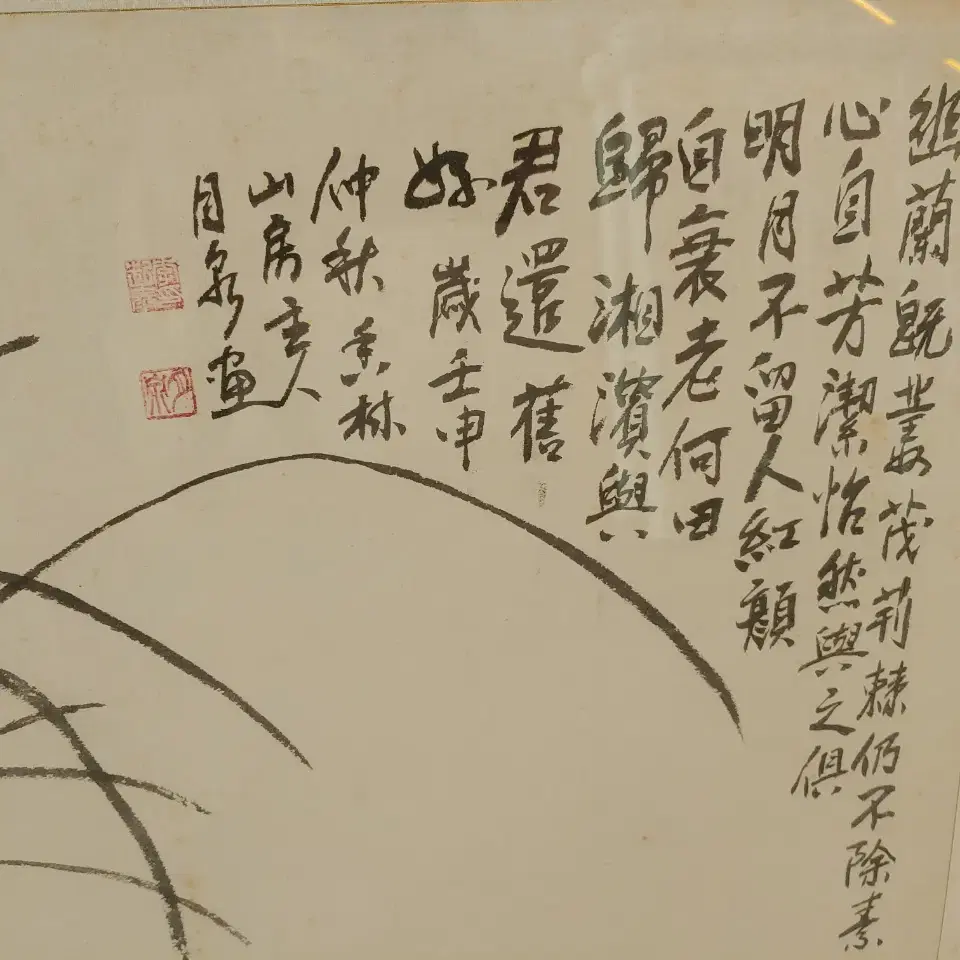 幽蘭既叢茂荊棘仍不除素
心自芳潔怡然與之俱
明月不留人紅顏
自衰老何田
歸湘濱與
君還舊
好 歲壬申
仲秋 香林
山房主人
月泉画
月泉